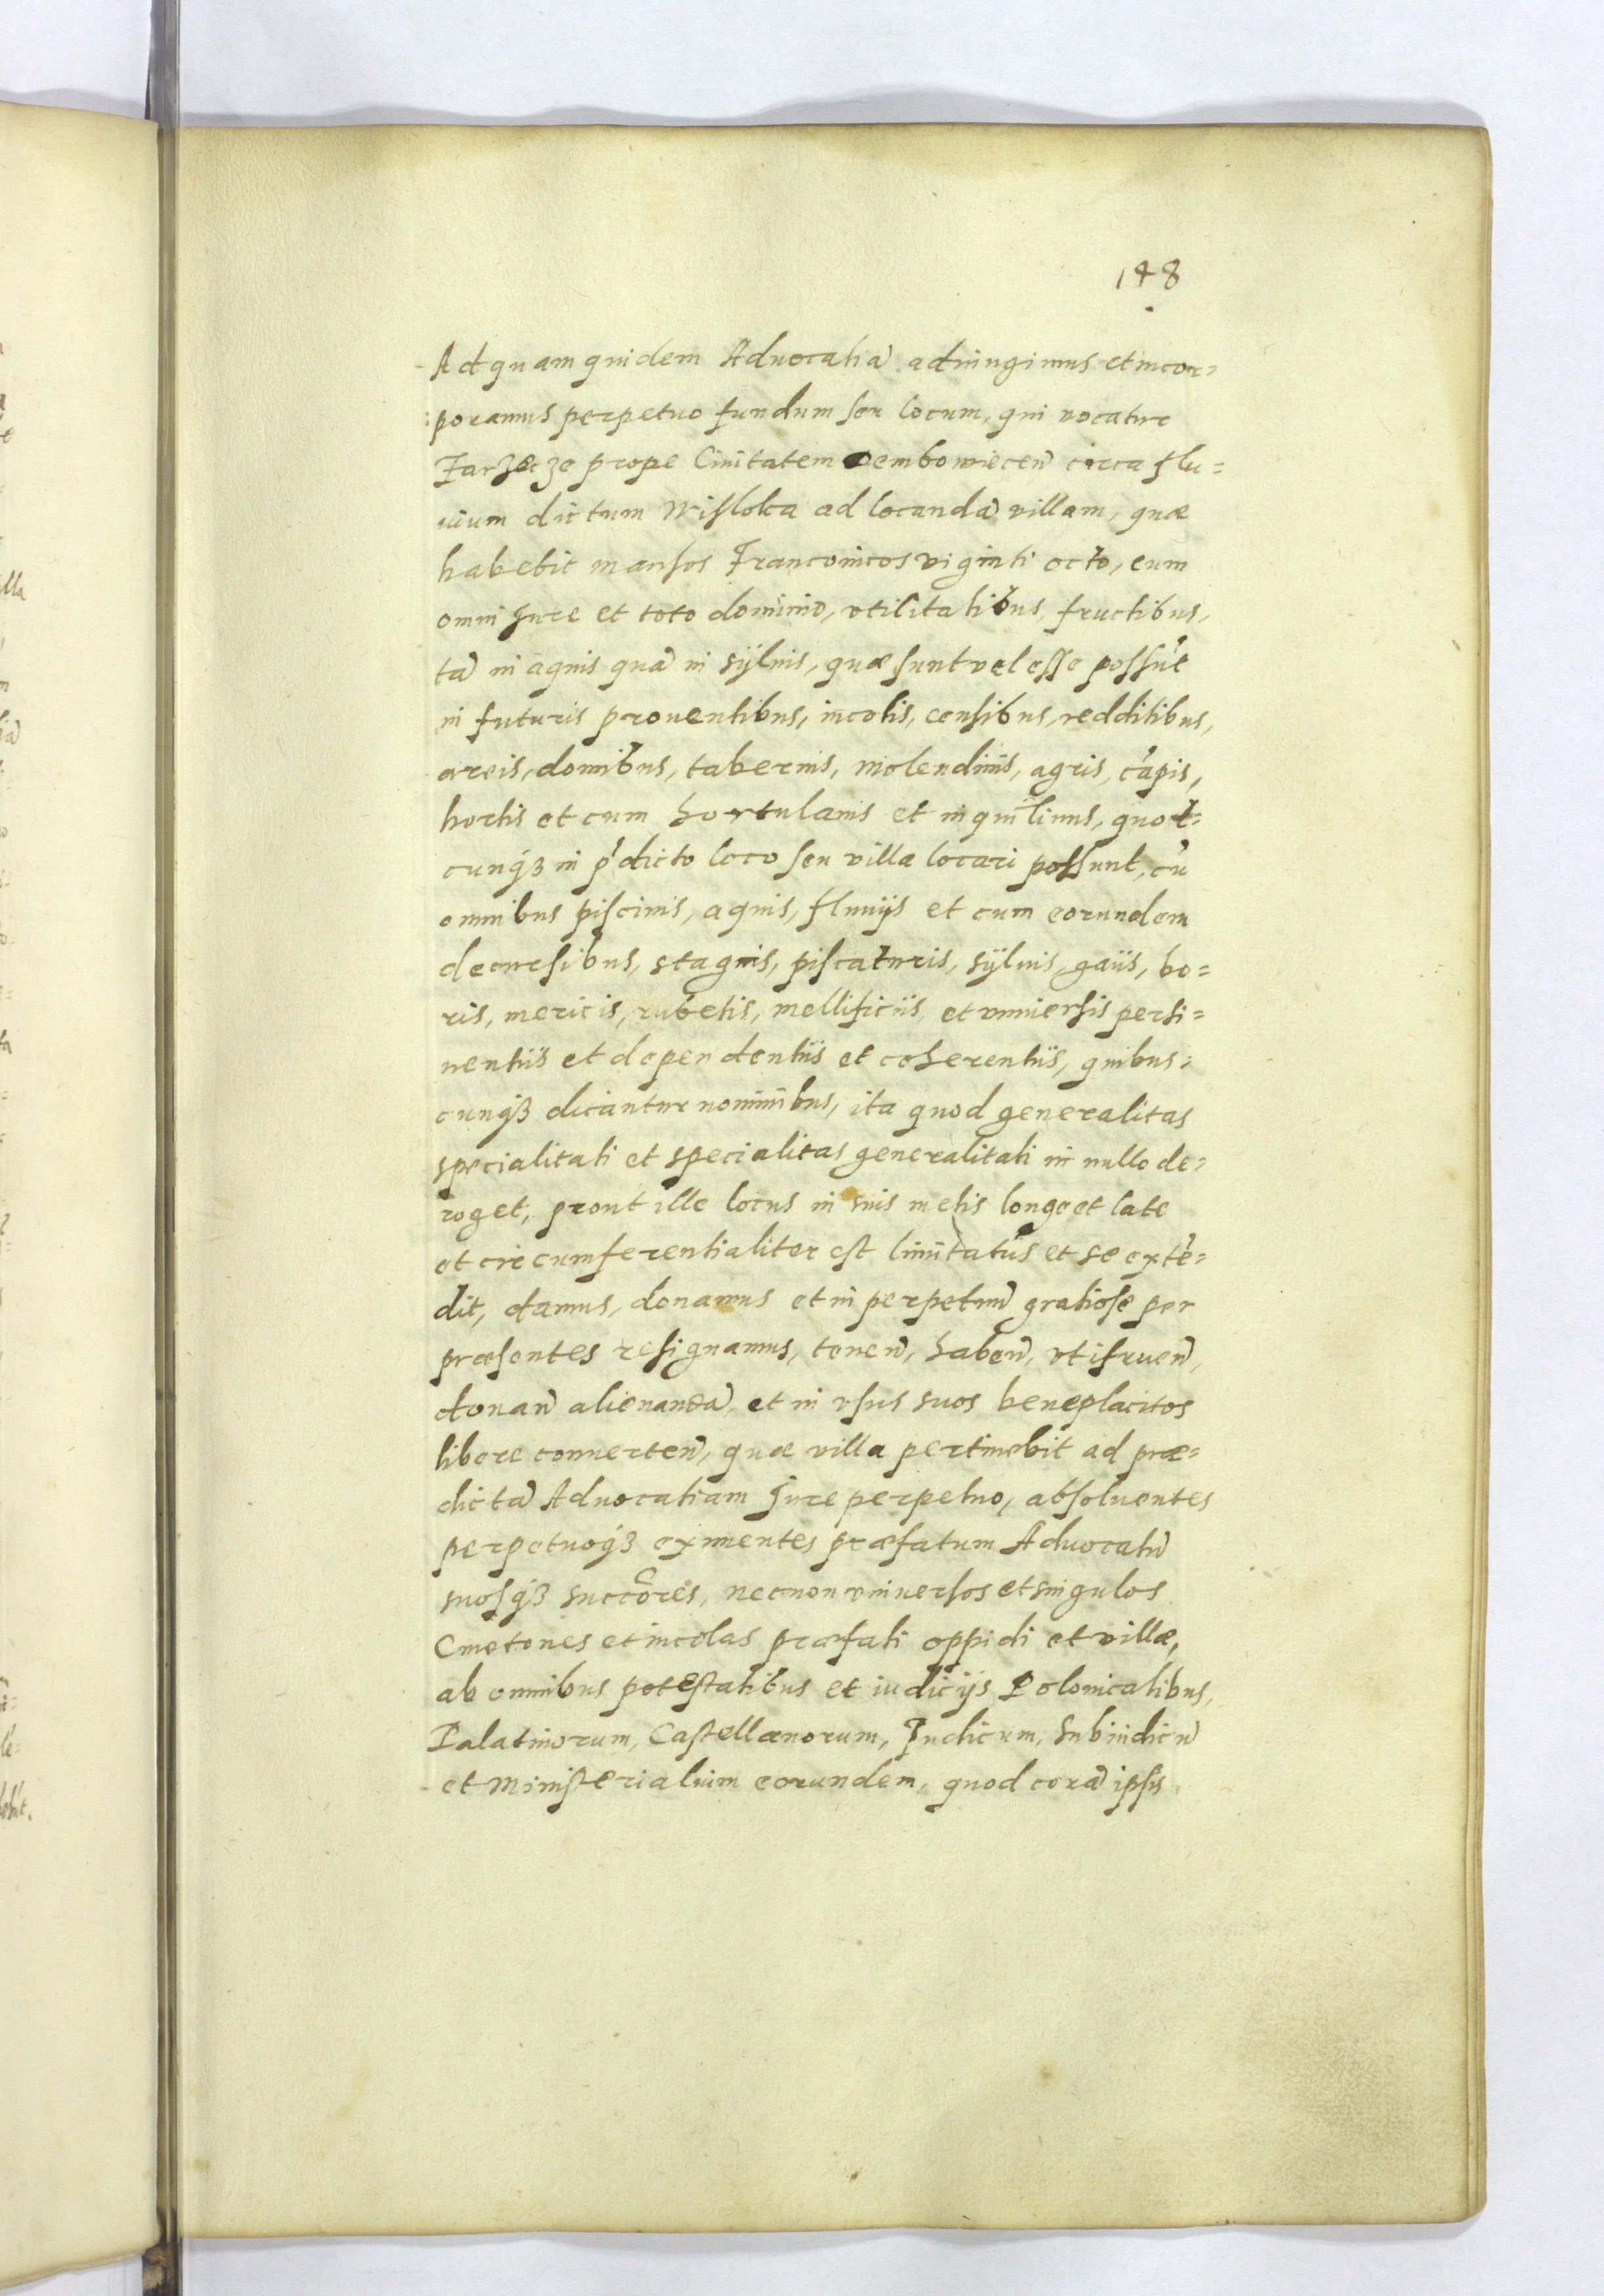 148
Ad quam quidem Aduocatiã adiungimus et incor=
poramus perpetuo fundum seu locum, qui vocatur
Zarzecze prope Ciuitatem Dembowiecen̄ circa flu=
uium dictum Wisloka ad locandã villam, quæ
habebit mansos Franconicos viginti octo, cum
omni Iure et toto dominio, vtilitatibus, fructibus,
tã in aquis quã in syluis, quæ sunt vel esse possũt
in futuris prouentibus, incolis, censibus, redditibus,
areis, domibus, tabernis, molendinis, agris, cãpis,
hortis et cum hortulanis et inquilinis, quot=
cunq3 in p̃dicto loco seu villa locari possunt, cũ
omnibus piscinis, aquis, fluuijs et cum eorundem
decursibus, stagnis, piscaturis, syluis, gaiis, bo=
ris, mericis, rubetis, mellificiis, et vniuersis perti=
nentiis et dependentiis et coherentiis, quibus=
cunq3 dicantur nominibus, ita quod generalitas
specialitati et specialitas generalitati in nullo de=
roget, prout ille locus in suis metis longe et late
et circumferentialiter est limitatus et se extẽ=
dit, damus, donamus et in perpetuũ gratiose per
præsentes resignamus, tenen̄, haben̄, vtifruen̄,
donan̄ alienandã, et in vsus suos beneplacitos
libere conuerten̄, quæ villa pertinebit ad præ=
dictã Aduocatiam Iure perpetuo, absoluentes
perpetuoq3 eximentes præfatum Aduocatũ
suosq3 succõres, necnon vniuersos et singulos
Cmetones et incolas præfati oppidi et villæ,
ab omnibus potestatibus et iudicijs Polonicalibus,
Palatinorum, Castellanorum, Iudicum, Subiudicũ
et Ministerialium eorundem, quod corã ipsis